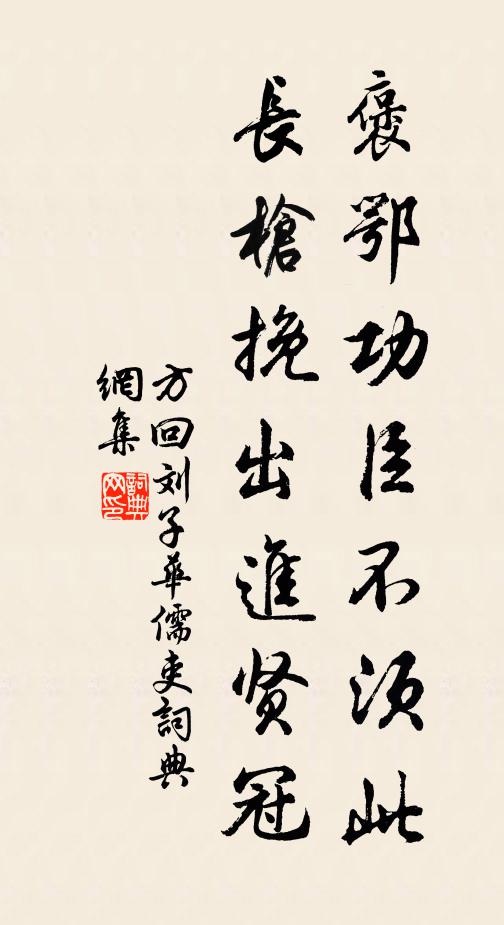 褒鄂功臣不须此
長槍挽出進贤冠
方回刘子華儒吏詞典
網集
詞典
网印